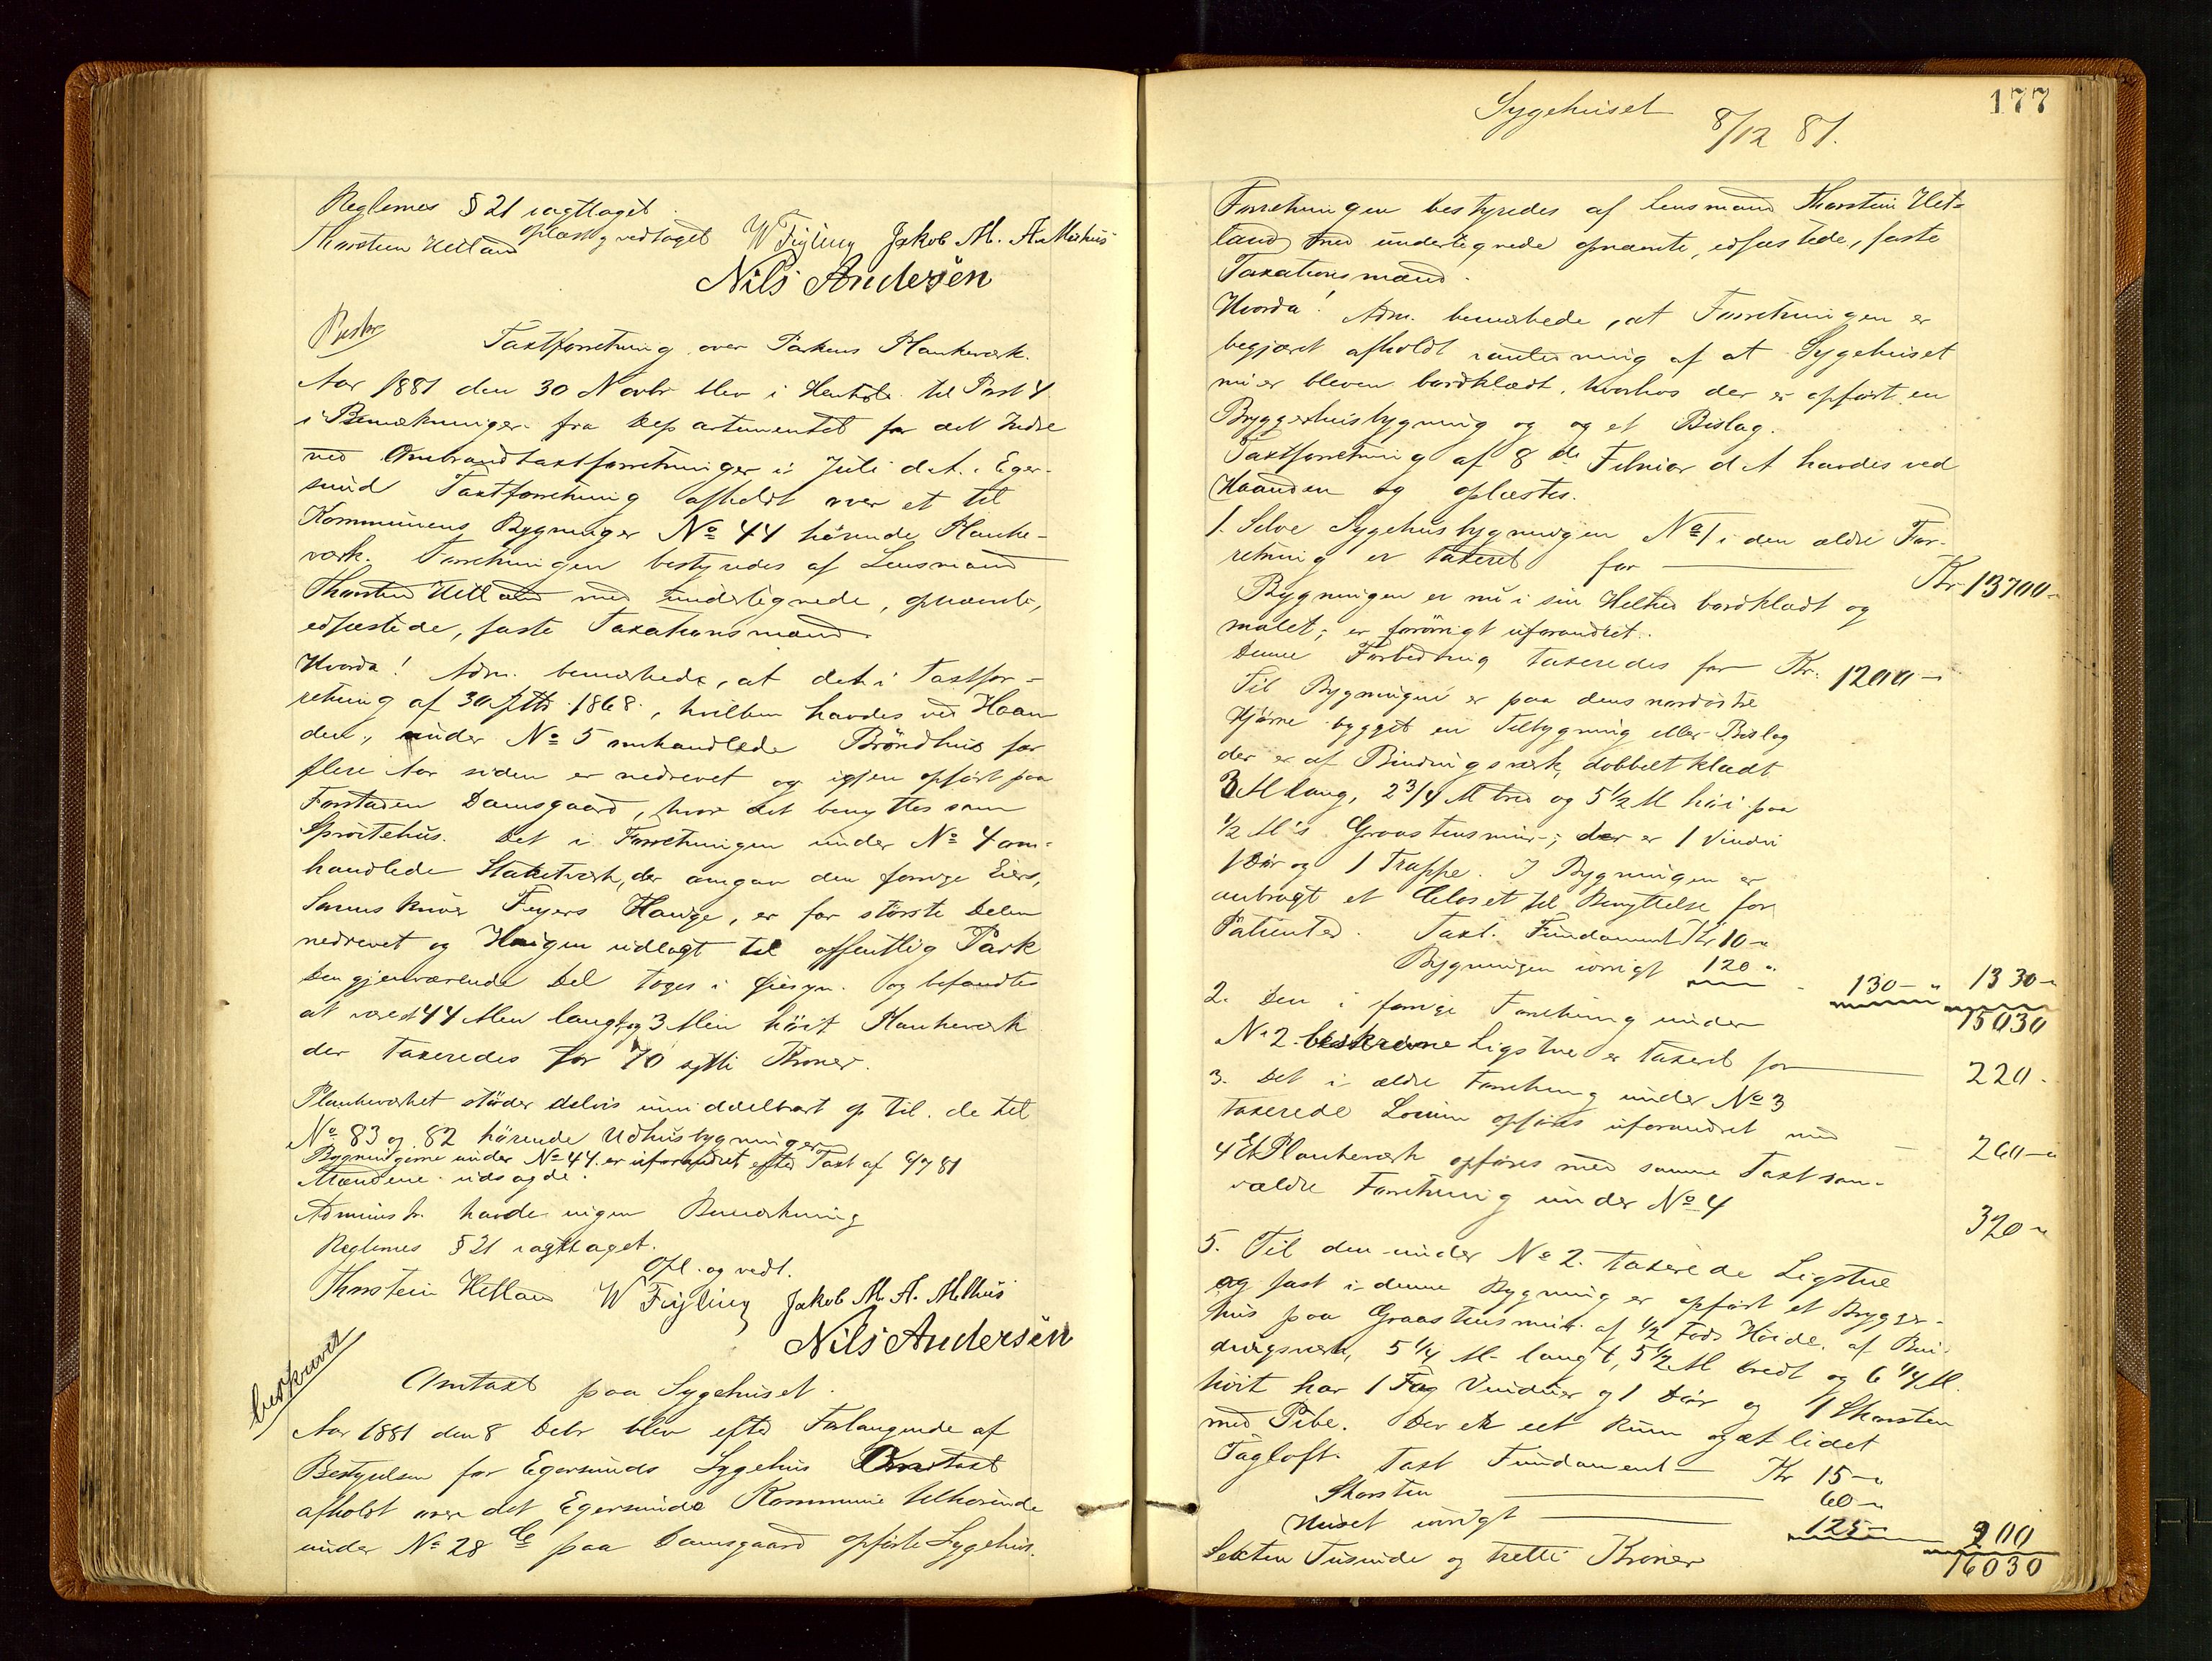 Reglernes § 21 iagttaget.
oplæst og vedtaget
Thorstein Hetland W Feyling Jakob M. A. Melhus
Nils Andersen
Taxtforretning over Parkens Plankeværk.
Aar 1881 den 30 Novbr blev i Henhold til Post 4
i Bemærkninger fra Departementet for det Indre
ved Ombrandtaxtforretninger i Juli d.A. i Eger-
sund Taxtforretning afholdt over et til
Kommunens Bygninger No 44 hörende Planke-
værk. Forretningen bestyredes af Lensmand
Thorstein Hetland med undertegnede, opnævnte,
edfæstede, faste Taxationsmænd.
Hvorda! Adm. bemærkede, at det i Taxtfor-
retning af 30 Septbr 1868, hvilken havdes ved Haan
den, under No 5 omhandlede Bröndhus for
flere Aar siden er nedrevet og igjen opfört paa
Forstaden Damsgaard, hvor det benyttes som
Spröitehus. Det i Forretningen under No 4 om-
handlede Staketværk, der omgav den forrige Eiers,
Feyers Hauge, er for störste Delen
nedrevet og Haugen udlagt til offentlig Park
Den gjenværende Del toges i Öiesyn og befandtes
at være et 44 Alen langt og 3 Alen höit Plankeværk
der taxeredes for 70 sytti Kroner.
Plankeværket stöder delvis umiddelbart op til de til
No 83 og 82 hörende Udhusbygninger
Bygningerne under No 44 er uforandret efter Taxt af 9/7 81
Mændene udsagde.
Administr. havde ingen Bemærkning
Reglernes § 21 iagttaget.
Opl. og vedt.
Thorstein Hetland W Feyling Jakob M. A. Melhus
Nils Andersen
beskrevet
Omtaxt paa Sygehuset.
Aar 1881 den 8 Debr blev efter Forlangende af
Bestyrelsen for Egersunds Sygehus Omtaxt
afholdt over det Egersunds Kommune tilhörende
under No 28 c paa Damsgaard opförte Sygehus.
177
Sygehuset
8/12 81.
Forretningen bestyredes af Lensmand Thorstein Het-
land med undertegnede opnævnte, edfæstede, faste
Taxationsmænd.
Hvorda! Adm. bemærkede, at Forretningen er
begjæret afholdt i anledning af at Sygehuset
nu er bleven bordklædt, hvorhos der er opfört en
Bryggerhusbygning og og et Bislag.
Taxtforretning af 8de Februar d A havdes ved
Haanden og oplæstes.
1. Selve Sygehusbygningen No 1 i den ældre For-
retning er taxeret for Kr 13700-
Bygningen er nu i sin Helhed bordklædt og
malet; er forövrigt uforandret.
Denne Forbedring taxeredes for Kr. 1200-
Til Bygningen er paa dens nordöstre
Hjörne bygget en Tilbygning eller Bislag
der er af Bindingsværk, dobbelt klædt
3 Al lang, 2 3/4 Al bred og 5 1/2 Al höi paa
1/2 Al's Graastensmur; der er 1 Vindu
1 Dör og 1 Trappe. I Bygningen er
anbragt et Closet til Benyttelse for
Patienter. Taxt. Fundament Kr 10-
Bygningen iövrigt 120 - 130- 1330-
15030
2. Den i forrige Forretning under
No 2 beskrevne Ligstue er taxeret for 220-
3. Det i ældre Forretning under No 3
taxerede Locum opföres uforandret med 260-
4 Et Plankeværk opföres med samme Taxt som
i ældre Forretning under No 4 320-
5. Til den under No 2 taxerede Ligstue
og fast i denne Bygning er opfört et Brygger-
hus paa Graastensmur af 1/2 Fods Höide, af Bin-
dingsværk, 5 1/4 Al langt, 5 1/2 Al bredt og 6 1/4 Al
höit har 1 Fag Vinduer og 1 Dör og 1 Skorsten
med Pibe. Der er eet Rum og et lidet
Tagloft. Taxt Fundament Kr 15-
Skorsten 60-
Huset iövrigt 125- 200
Sexten Tusinde og tretti Kroner 16030